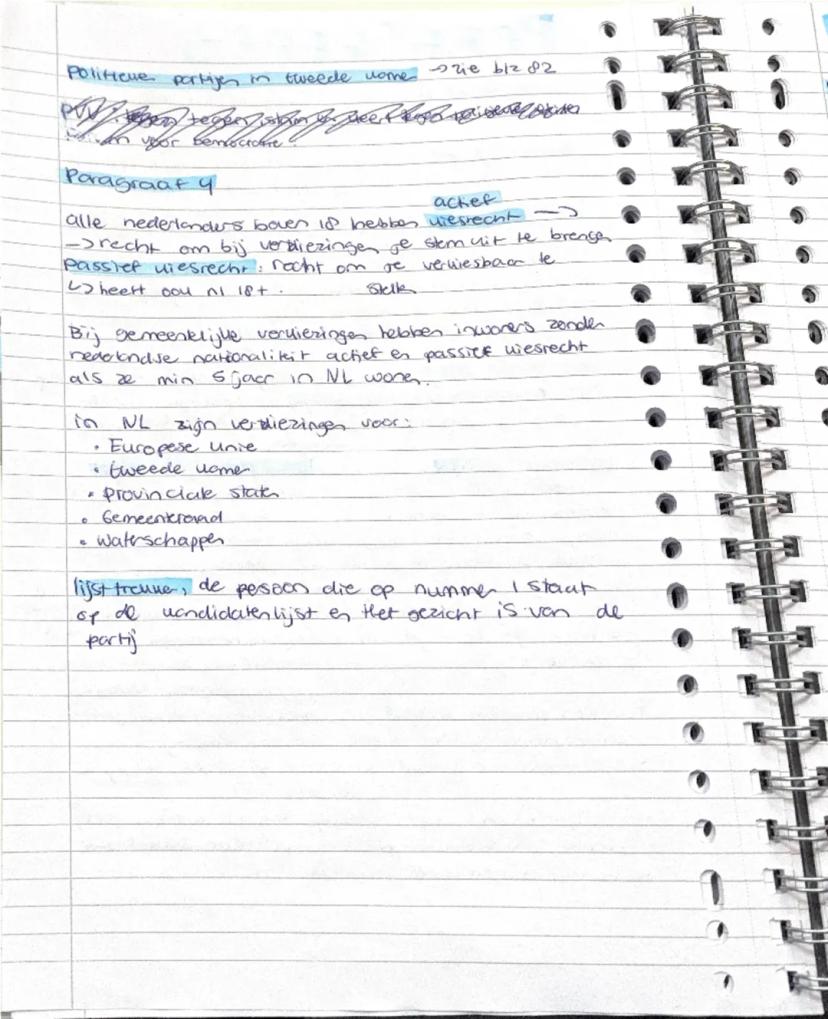 Politieke partijen in tweede kamer → zie blz 82
voor democratie.
Paragraaf 4
actief
alle nederlanders boven 18 hebben kiesrecht →
→ recht om bij verkiezingen je stem uit te brengen
passief kiesrecht: recht om je verkiesbaar te
↳ heeft ook nl 18+. stellen
Bij gemeentelijke verkiezingen hebben inwoners zonder
nederlandse nationaliteit actief en passief kiesrecht
als ze min 5 jaar in NL wonen.
in NL zijn verkiezingen voor:
• Europese unie
• tweede kamer
• Provinciale staten
• Gemeenteraad
• Waterschappen
lijsttrekker, de persoon die op nummer 1 staat
op de kandidatenlijst en Het gezicht is van de
partij